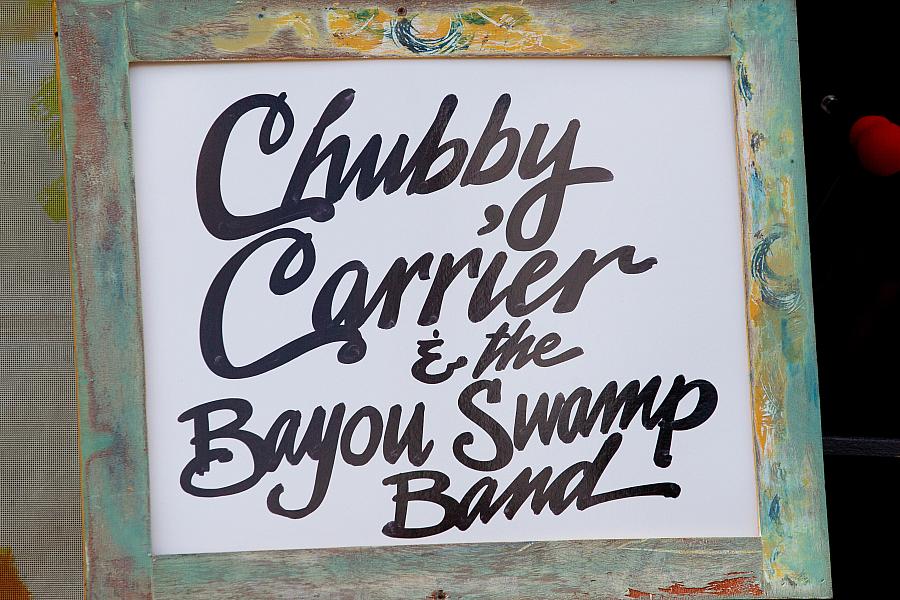 Chubby
Carrier
& the
Bayou Swamp
Band